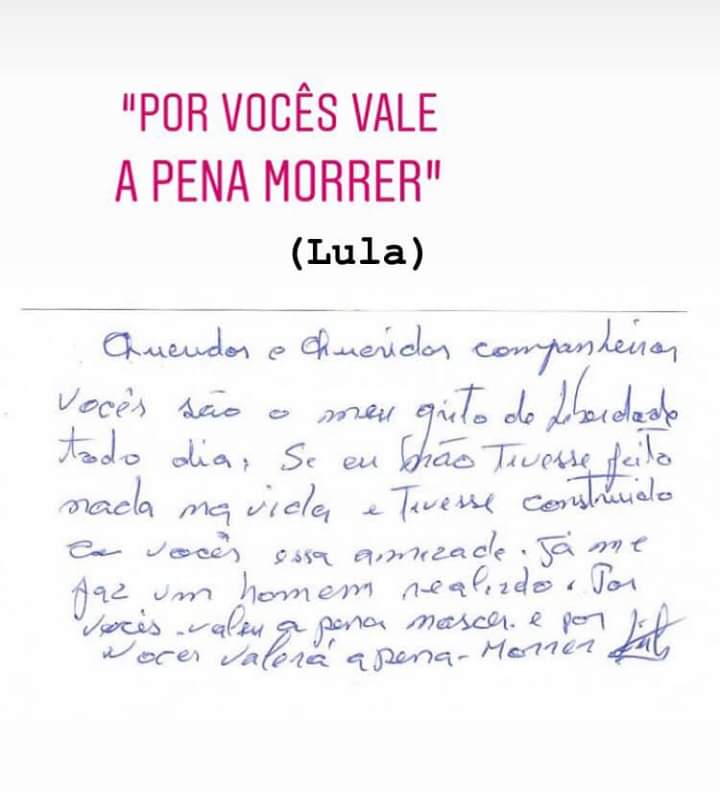 "POR VOCÊS VALE
A PENA MORRER"
(Lula)
Queridos e Queridas companheiros
vocês são o meu grito de Liberdade
todo dia, Se eu não Tivesse feito
nada na vida e Tivesse construido
vocês essa amizade. Já me
faz um homem realizdo. Por
vocês valeu a pena nascer e por
voces valerá a pena - Morrer